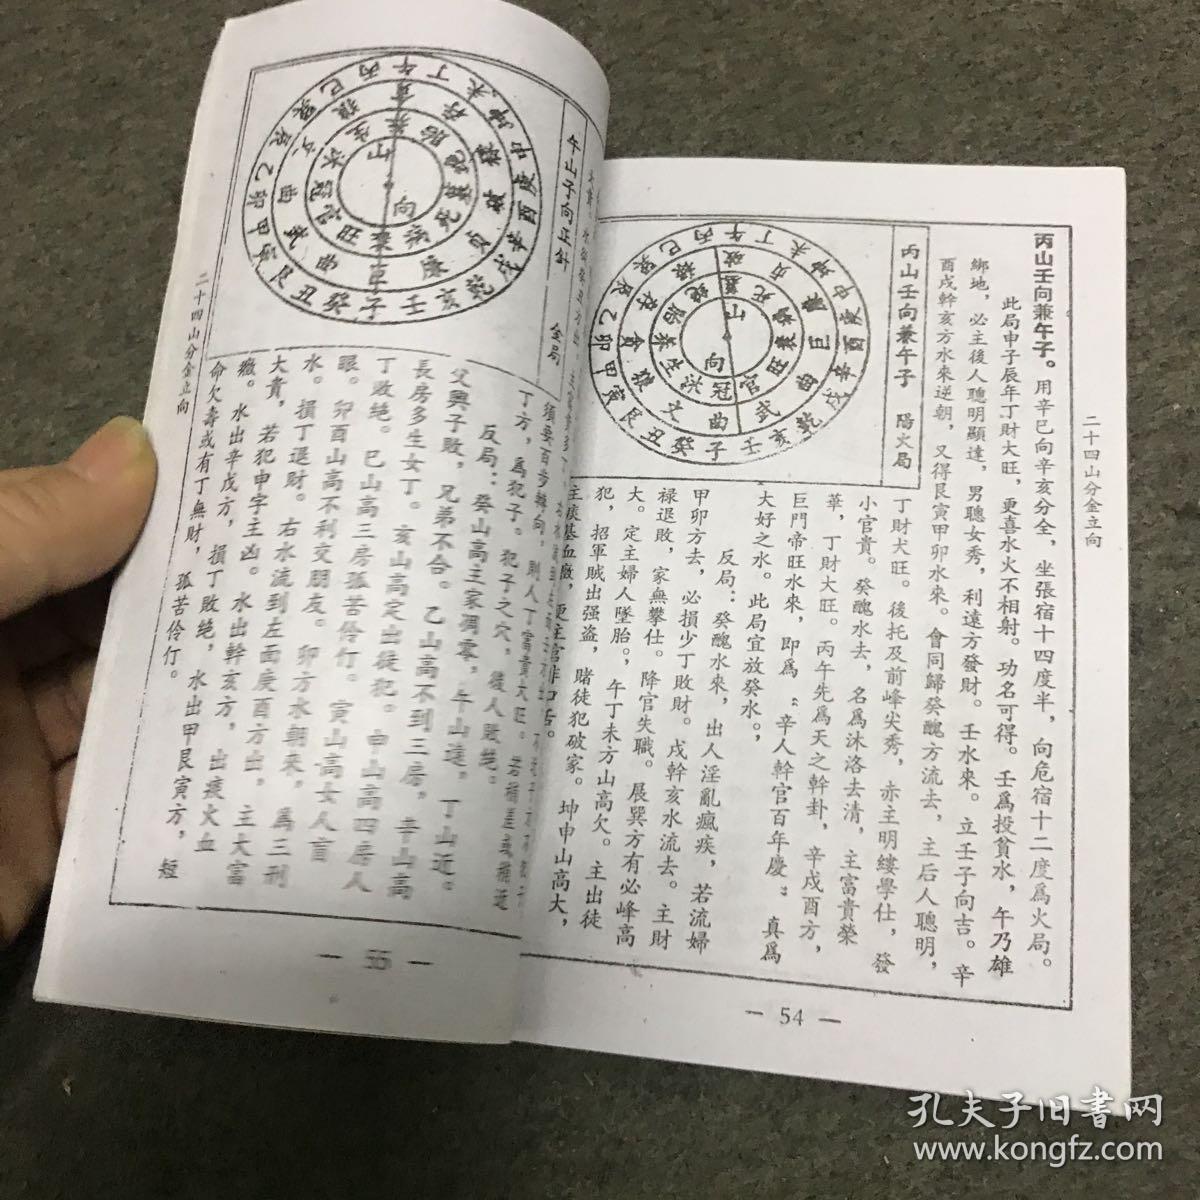 二十四山分金立向
丙山壬向兼午子。用辛巳向辛亥分全，坐張宿十四度半，向危宿十二度爲火局。
此局申子辰年丁財大旺，更喜水火不相射。功名可得。壬爲投貧水，午乃雄
綁地，必主後人聰明顯達，男聰女秀，利遠方發財。壬水來。立壬子向吉。辛
酉戌幹亥方水來逆朝，又得艮寅甲卯水來。會同歸癸醜方流去，主后人聰明，
丁財犬旺。後托及前峰尖秀，赤主明縷學仕，發
小官貴。癸醜水去，名爲沐洛去清，主富貴榮
華，丁財大旺。丙午先爲天之幹卦，辛戌酉方，
巨門帝旺水來，即爲“辛人幹官百年慶”真爲
大好之水。此局宜放癸水。，
反局：癸醜水來，出人淫亂瘋疾，若流婦
甲卯方去，必損少丁敗財。戌幹亥水流去。主財
禄退敗，家無攀仕。降官失職。展巽方有必峰高
大。定主婦人墜胎。，午丁未方山高欠。主出徒
犯，招軍賊出强盗，賭徒犯破家。坤申山高大，
主痰基血癥，更主官非口舌。
丙山壬向兼午子 陽火局
丙午丁未坤申庚酉辛戌乾亥壬子癸丑艮寅甲卯乙辰巽巳
破貞廉巨曲武曲文狼貪存禄
墓死病衰旺官冠沐生养胎绝
山
向
— 54 —
午山子向正針 金局
丙午丁未坤申庚酉辛戌乾亥壬子癸丑艮寅甲卯乙辰巽巳
养胎绝墓死病衰旺官冠沐生
山
向
丁方，爲犯子。犯子之穴，後人敗绝。
反局：癸山高主家凋零，午山逵，丁山近。
父興子敗，兄弟不合。乙山高不到三房，辛山高
長房多生女丁。亥山高定出徒犯。申山高四房人
丁敗绝。巳山高三房孤苦伶仃。寅山高女人盲
眼。卯酉山高不利交朋友。卯方水朝来，爲三刑
水。損丁退財。右水流到左面庚酉方出，主大富
大貴，若犯申字主凶。水出幹亥方，出痰火血
癥。水出辛戌方，損丁敗绝，水出甲艮寅方，短
命欠壽或有丁無財，孤苦伶仃。
二十四山分金立向
— 55 —
孔夫子旧書网
www.kongfz.com